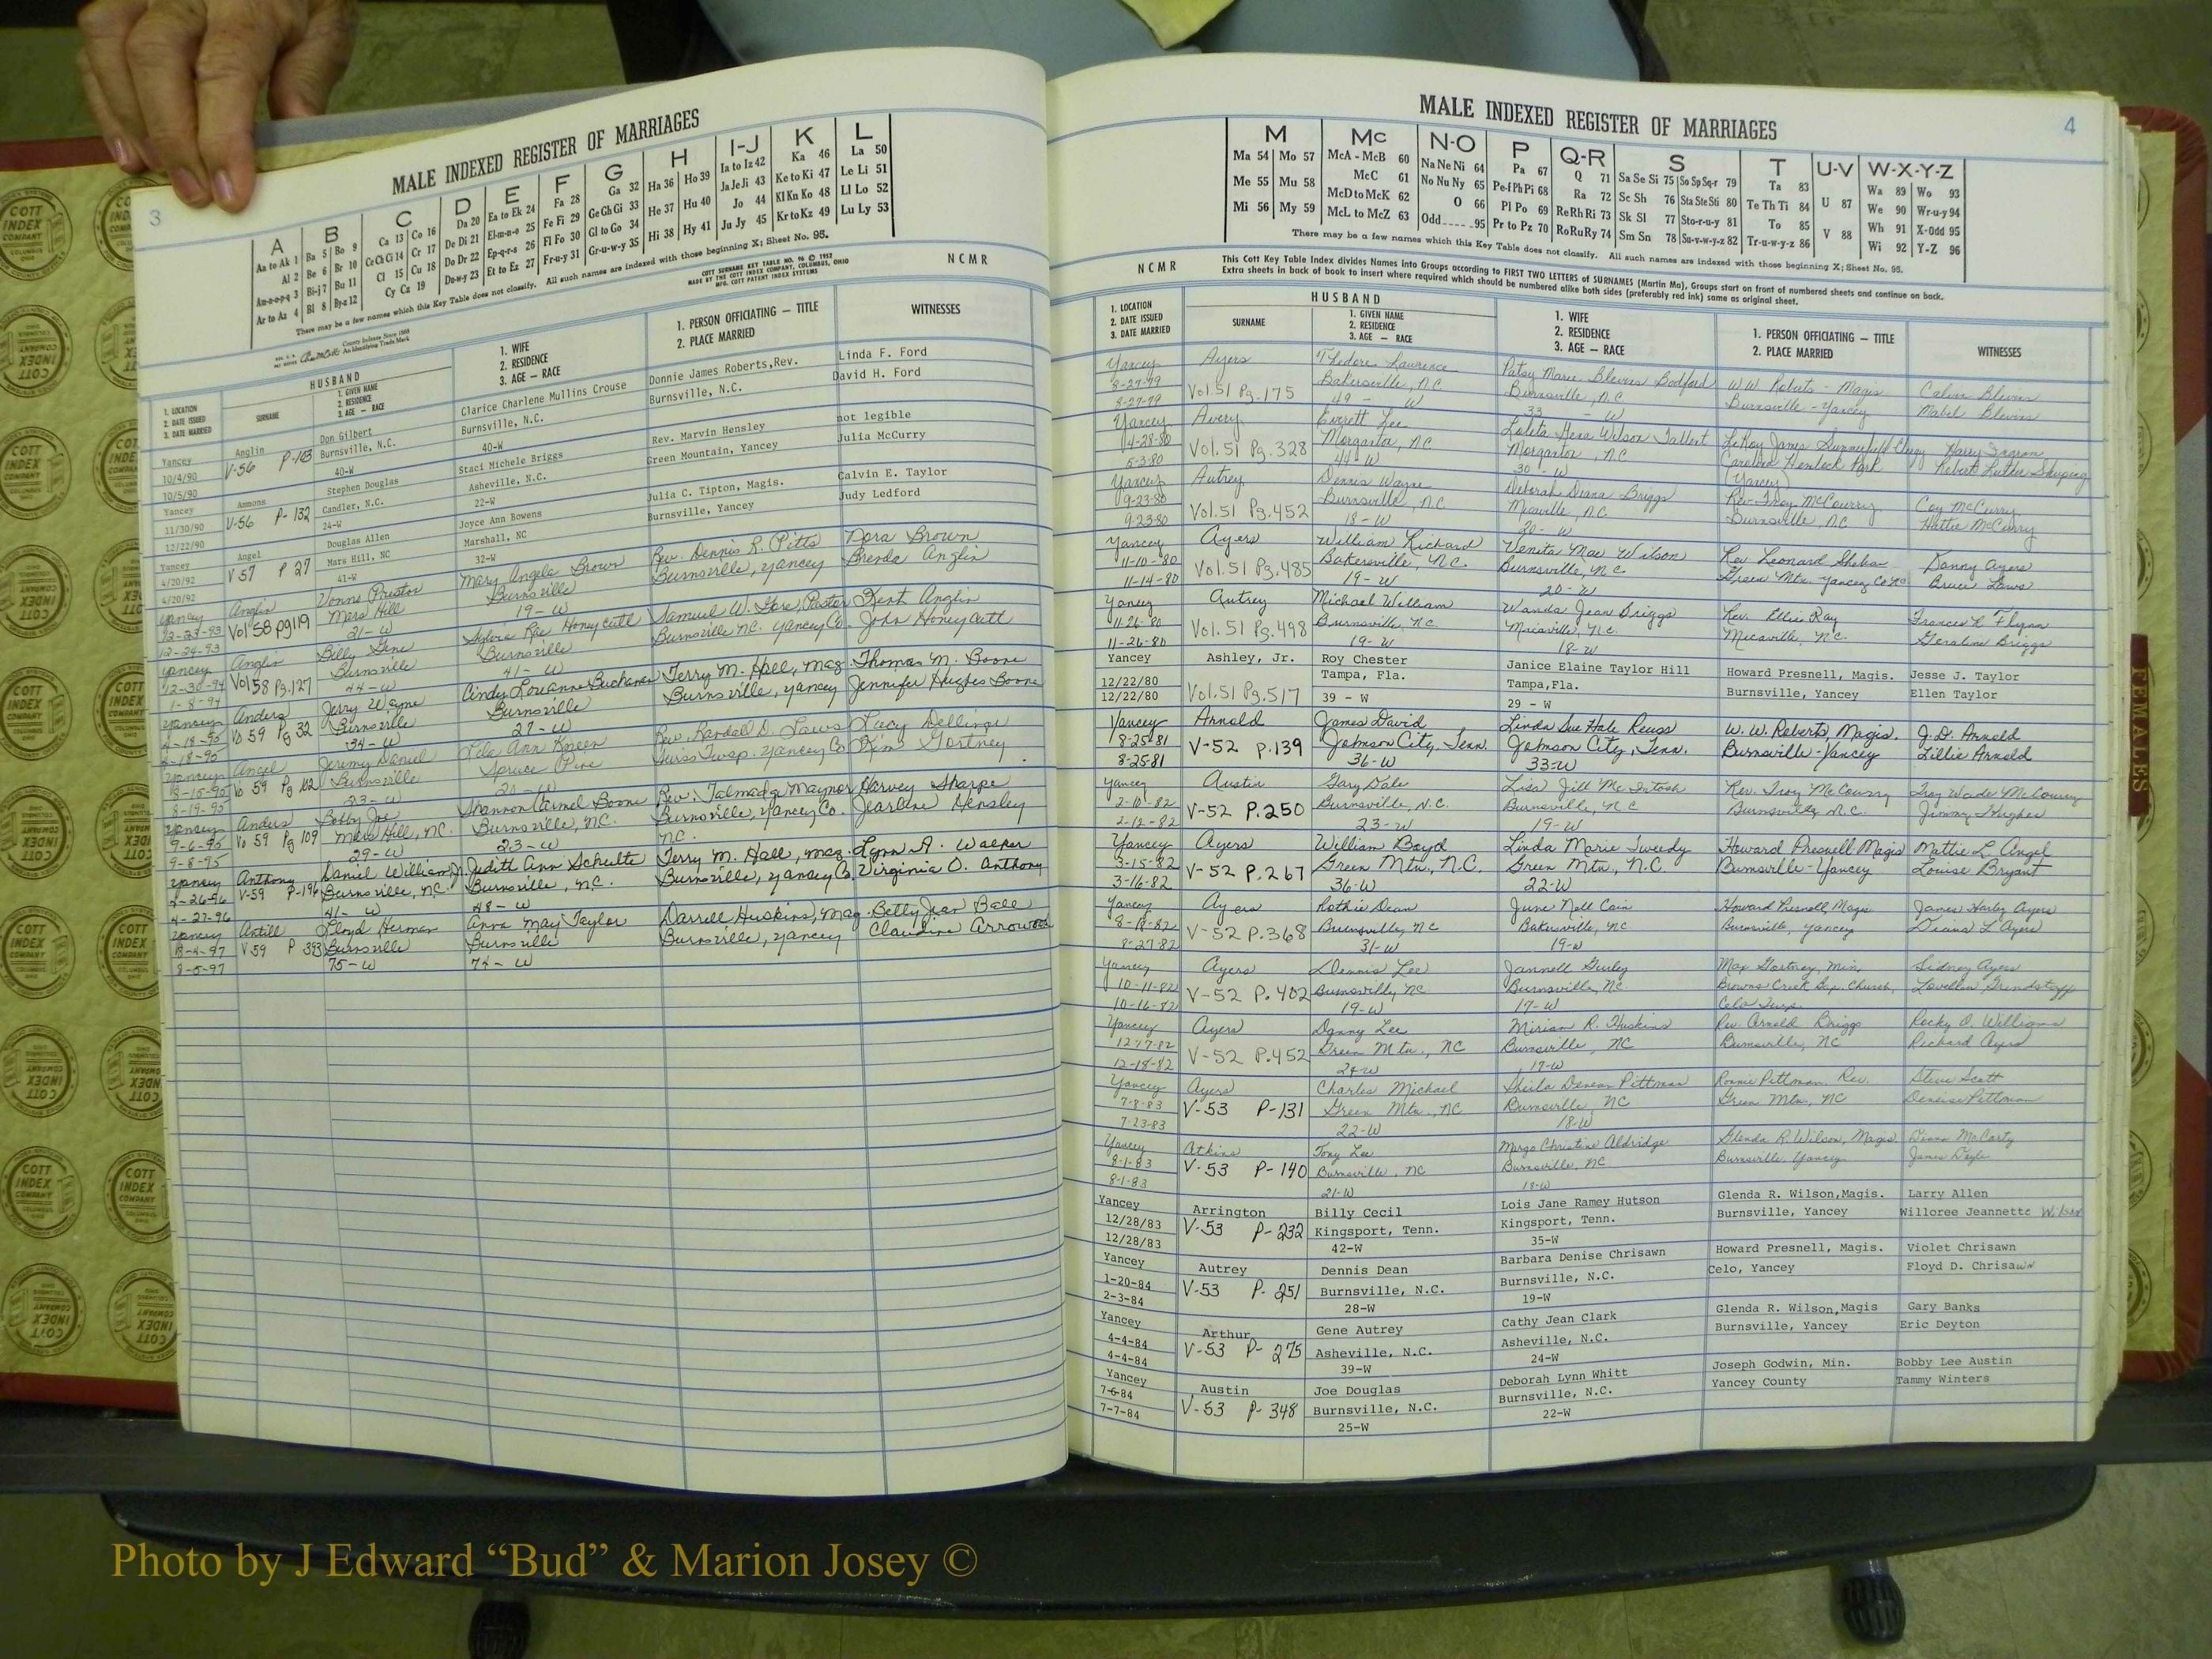 3
MALE INDEXED REGISTER OF MARRIAGES
A B C D E F G H I-J K L
Aa to Ak 1 Ba 5 Bo 9 Ca 13 Co 16 Da 20 Ea to Ek 24 Fa 28 Ga 32 Ha 36 Ho 39 Ia to Iz 42 Ka 46 La 50
Al 2 Be 6 Br 10 Ce Ch Ci 14 Cr 17 De Di 21 El-m-n-o 25 Fe Fi 29 Ge Gh Gi 33 He 37 Hu 40 Ja Je Ji 43 Ke to Ki 47 Le Li 51
Am-n-o-p-q 3 Bi-j 7 Bu 11 Cl 15 Cu 18 Do Dr 22 Ep-q-r-s 26 Fl Fo 30 Gl to Go 34 Hi 38 Hy 41 Jo 44 Kl Kn Ko 48 Ll Lo 52
Ar to Az 4 Bl 8 By-z 12 Cy Cz 19 Du-w-y 23 Et to Ez 27 Fr-u-y 31 Gr-u-w-y 35 Ju Jy 45 Kr to Kz 49 Lu Ly 53
There may be a few names which this Key Table does not classify. All such names are indexed with those beginning X; Sheet No. 95.
COTT SURNAME KEY TABLE NO. 96 © 1952
MADE BY THE COTT INDEX COMPANY, COLUMBUS, OHIO
MFG. COTT PATENT INDEX SYSTEMS
NCMR
County Indexes Since 1888
An Identifying Trade Mark
1. LOCATION
2. DATE ISSUED
3. DATE MARRIED
HUSBAND
SURNAME
1. GIVEN NAME
2. RESIDENCE
3. AGE — RACE
1. WIFE
2. RESIDENCE
3. AGE — RACE
1. PERSON OFFICIATING — TITLE
2. PLACE MARRIED
WITNESSES
Yancey Anglin Don Gilbert Clarice Charlene Mullins Crouse Donnie James Roberts,Rev. Linda F. Ford
10/4/90 V-56 P-103 Burnsville, N.C. Burnsville, N.C. Burnsville, N.C. David H. Ford
10/5/90 40-W 40-W
Yancey Ammons Stephen Douglas Staci Michele Briggs Rev. Marvin Hensley not legible
11/30/90 V-56 P-132 Candler, N.C. Asheville, N.C. Green Mountain, Yancey Julia McCurry
12/22/90 24-W 22-W
Yancey Angel Douglas Allen Joyce Ann Bowens Julia C. Tipton, Magis. Calvin E. Taylor
4/20/92 V 57 P 27 Mars Hill, NC Marshall, NC Burnsville, Yancey Judy Ledford
4/20/92 41-W 32-W
Yancey Anglin Vonno Pastor Mary Angela Brown Rev. Dennis R. Pitts Nora Brown
12-23-93 Vol 58 pg 119 Mars Hill Burnsville Burnsville, Yancey Brenda Anglin
12-24-93 21-W 19-W
Yancey Anglin Billy Gene Sylvia Rae Honeycutt Samuel W. Pastor Kent Anglin
12-30-94 Vol 58 Pg. 127 Burnsville Burnsville Burnsville NC. Yancey Co. John Honeycutt
1-8-94 44-W 41-W
Yancey Anders Jerry Wayne Cindy Louanne Buchanan Terry M. Hall, Mag. Thomas M. Boone
4-18-95 Vo 59 Pg 32 Burnsville Burnsville Burnsville, Yancey Jennifer Hughes Boone
4-18-95 34-W 27-W
Yancey Angel Jeremy Daniel Ann Rev. Randall D. Laws Lucy Dellinger
8-15-95 Vo 59 Pg 102 Burnsville Spruce Pine Twsp. Yancey Co Kim Gortney
8-19-95 23-W
Yancey Anders Bobby Joe Shannon Carmel Boone Rev. Talmadge Maynor Harvey Sharpe
9-6-95 Vo 59 Pg 109 Mars Hill, NC. Burnsville, NC. Burnsville, Yancey Co. Jearlene Hensley
9-8-95 29-W 23-W NC.
Yancey Anthony Daniel William Jr Judith Ann Schulte Terry M. Hall, Mag. Lynn A. Walker
4-26-96 V-59 P-196 Burnsville, NC. Burnsville, NC. Burnsville, Yancey Co. Virginia O. Anthony
4-27-96 41-W 48-W
Yancey Antill Floyd Herman Anna May Taylor Darrell Huskins, Mag Betty Jean Ball
8-4-97 V59 P 393 Burnsville Burnsville Burnsville, Yancey Claudine Arrowood
8-5-97 75-W 74-W
4
MALE INDEXED REGISTER OF MARRIAGES
M Mc N-O P Q-R S T U-V W-X-Y-Z
Ma 54 Mo 57 McA - McB 60 Na Ne Ni 64 Pa 67 Q 71 Sa Se Si 75 So Sp Sq-r 79 Ta 83 U 87 Wa 89 Wo 93
Me 55 Mu 58 McC 61 No Nu Ny 65 Pe-f Ph Pi 68 Ra 72 Sc Sh 76 Sta Ste Sti 80 Te Th Ti 84 We 90 Wr-u-y 94
Mi 56 My 59 McD to McK 62 O 66 Pl Po 69 Re Rh Ri 73 Sk Sl 77 Sto-r-u-y 81 To 85 V 88 Wh 91 X-Odd 95
McL to McZ 63 Odd 95 Pr to Pz 70 Ro Ru Ry 74 Sm Sn 78 Su-v-w-y-z 82 Tr-u-w-y-z 86 Wi 92 Y-Z 96
There may be a few names which this Key Table does not classify. All such names are indexed with those beginning X; Sheet No. 95.
NCMR
This Cott Key Table Index divides Names into Groups according to FIRST TWO LETTERS of SURNAMES (Martin Ma), Groups start on front of numbered sheets and continue on back.
Extra sheets in back of book to insert where required which should be numbered alike both sides (preferably red ink) same as original sheet.
1. LOCATION
2. DATE ISSUED
3. DATE MARRIED
HUSBAND
SURNAME
1. GIVEN NAME
2. RESIDENCE
3. AGE — RACE
1. WIFE
2. RESIDENCE
3. AGE — RACE
1. PERSON OFFICIATING — TITLE
2. PLACE MARRIED
WITNESSES
Yancey Ayers Thedore Lawrence Patsy Marie Blevins Bedford W.W. Roberts - Magis Calvin Blevins
8-27-79 Vol.51 Pg.175 Bakersville, NC Burnsville, NC Burnsville - Yancey Mabel Blevins
8-27-79 49 - W 33 - W
Yancey Avery Everett Lee Loleta Wilson Tallent LeRoy James Summerfield Clergy Harry
4-28-80 Vol.51 Pg.328 Morganton, NC Morganton, NC Carolina Hemlock Park Robert Luther Shuping
5-3-80 44-W 30-W (Yancey)
Yancey Autrey Dennis Wayne Deborah Diana Briggs Rev. Troy McCourry Coy McCurry
9-23-80 Vol.51 Pg.452 Burnsville, NC Micaville, NC. Burnsville, NC Hattie McCurry
9-23-80 18-W 20-W
Yancey Ayers William Richard Venita Mae Wilson Rev Leonard Shehan Danny Ayers
11-10-80 Vol.51 Pg.485 Bakersville, N.C. Burnsville, N.C. Green Mtn. Yancey Co NC Bruce Laws
11-14-80 19-W 20-W
Yancey Autrey Michael William Wanda Jean Briggs Rev. Ellis Ray Frances L. Flynn
11-26-80 Vol.51 Pg.498 Burnsville, NC. Micaville, N.C. Micaville, N.C. Geraline Briggs
11-26-80 19-W 18-W
Yancey Ashley, Jr. Roy Chester Janice Elaine Taylor Hill Howard Presnell, Magis. Jesse J. Taylor
12/22/80 Vol.51 Pg.517 Tampa, Fla. Tampa,Fla. Burnsville, Yancey Ellen Taylor
12/22/80 39 - W 29 - W
Yancey Arnold James David Linda Sue Hale Reuss W. W. Roberts, Magis. J.D. Arnold
8-25-81 V-52 P.139 Johnson City, Tenn. Johnson City, Tenn. Burnsville-Yancey Lillie Arnold
8-25-81 36-W 33-W
Yancey Austin Gary Dale Lisa Jill McIntosh Rev. Troy McCourry Troy Wade McCourry
2-10-82 V-52 P.250 Burnsville, N.C. Burnsville, NC Burnsville, N.C. Jimmy Hughes
2-12-82 23-W 19-W
Yancey Ayers William Boyd Linda Marie Tweedy Howard Presnell Magis Mattie L. Angel
3-15-82 V-52 P.267 Green Mtn., N.C. Green Mtn., N.C. Burnsville-Yancey Louise Bryant
3-16-82 36-W 22-W
Yancey Ayers Rothie Dean June Nell Cain Howard Presnell, Mags James Harley Ayers
8-18-82 V-52 P.368 Burnsville, NC Bakersville, NC Burnsville, Yancey Diana L. Ayers
8-27-82 31-W 19-W
Yancey Ayers Dennis Lee Jannell Gurley Max Gortney, Min, Sidney Ayers
10-11-82 V-52 P.402 Burnsville, NC Burnsville, NC. Browns Creek Bap. Church, Lovellen Grindstaff
10-16-82 19-W 17-W Celo Twp.
Yancey Ayers Danny Lee Miriam R. Huskins Rev. Arnold Briggs Rocky O. Williams
12-17-82 V-52 P.452 Green Mtn., NC Burnsville, NC Burnsville, NC Richard Ayers
12-18-82 24-W 19-W
Yancey Ayers Charles Michael Sheila Denean Pittman Ronnie Pittman, Rev. Steve Scott
7-8-83 V-53 P-131 Green Mtn., NC Burnsville, NC Green Mtn, NC Deneise Pittman
7-23-83 22-W 18-W
Yancey Atkins Tony Lee Margo Christine Aldridge Glenda R. Wilson, Magis. Diana McCarty
8-1-83 V-53 P-140 Burnsville, NC Burnsville, NC Burnsville, Yancey James
8-1-83 21-W 18-W
Yancey Arrington Billy Cecil Lois Jane Ramey Hutson Glenda R. Wilson,Magis. Larry Allen
12/28/83 V-53 P-232 Kingsport, Tenn. Kingsport, Tenn. Burnsville, Yancey Willoree Jeannette Wilson
12/28/83 42-W 35-W
Yancey Autrey Dennis Dean Barbara Denise Chrisawn Howard Presnell, Magis. Violet Chrisawn
1-20-84 V-53 P-251 Burnsville, N.C. Burnsville, N.C. Celo, Yancey Floyd D. Chrisawn
2-3-84 28-W 19-W
Yancey Arthur Gene Autrey Cathy Jean Clark Glenda R. Wilson,Magis Gary Banks
4-4-84 V-53 P-275 Asheville, N.C. Asheville, N.C. Burnsville, Yancey Eric Deyton
4-4-84 39-W 24-W
Yancey Austin Joe Douglas Deborah Lynn Whitt Joseph Godwin, Min. Bobby Lee Austin
7-6-84 V-53 P-348 Burnsville, N.C. Burnsville, N.C. Yancey County Tammy Winters
7-7-84 25-W 22-W
FEMALES
COTT INDEX COMPANY
Photo by J Edward “Bud” & Marion Josey ©